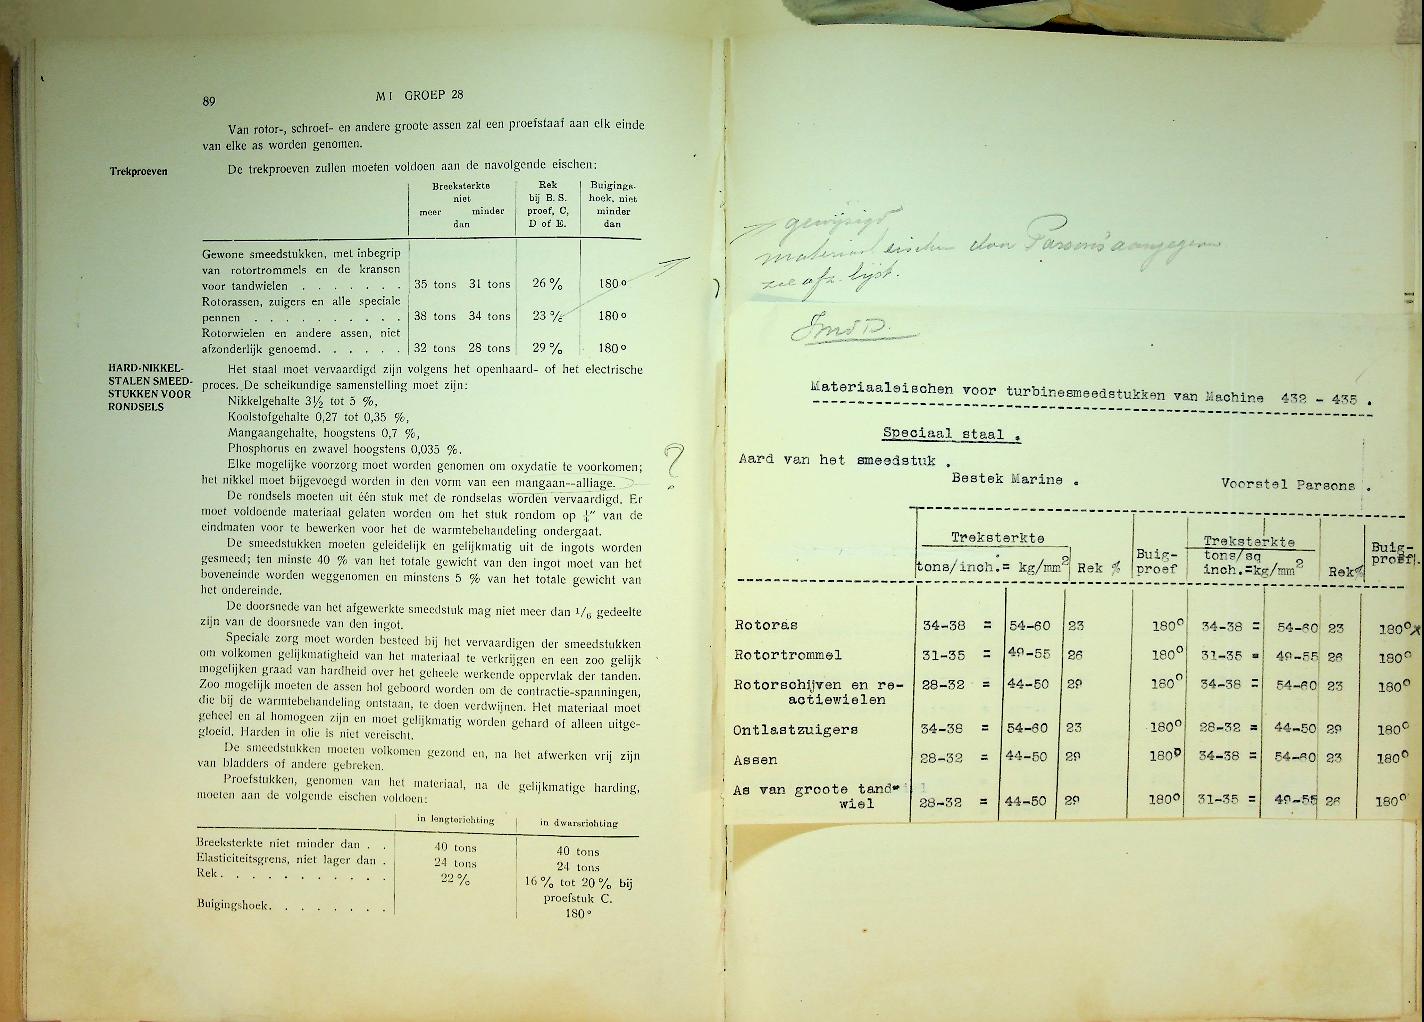 89
MI GROEP 28
Van rotor-, schroef- en andere groote assen zal een proefstaaf aan elk einde
van elke as worden genomen.
Trekproeven
De trekproeven zullen moeten voldoen aan de navolgende eischen:
Breeksterkte niet meer minder dan | Rek bij B. S. proef, C, D of E. | Buigings-hoek, niet minder dan
Gewone smeedstukken, met inbegrip
van rotortrommels en de kransen
voor tandwielen . . . . . . . 35 tons 31 tons 26 % 180°
Rotorassen, zuigers en alle speciale
pennen . . . . . . . . . . 38 tons 34 tons 23 % 180°
Rotorwielen en andere assen, niet
afzonderlijk genoemd. . . . . . 32 tons 28 tons 29 % 180°
HARD-NIKKEL-
STALEN SMEED-
STUKKEN VOOR
RONDSELS
Het staal moet vervaardigd zijn volgens het openhaard- of het electrische
proces. De scheikundige samenstelling moet zijn:
Nikkelgehalte 3½ tot 5 %,
Koolstofgehalte 0,27 tot 0,35 %,
Mangaangehalte, hoogstens 0,7 %,
Phosphorus en zwavel hoogstens 0,035 %.
Elke mogelijke voorzorg moet worden genomen om oxydatie te voorkomen;
het nikkel moet bijgevoegd worden in den vorm van een mangaan--alliage.
?
De rondsels moeten uit één stuk met de rondselas worden vervaardigd. Er
moet voldoende materiaal gelaten worden om het stuk rondom op ¼" van de
eindmaten voor te bewerken voor het de warmtebehandeling ondergaat.
De smeedstukken moeten geleidelijk en gelijkmatig uit de ingots worden
gesmeed; ten minste 40 % van het totale gewicht van den ingot moet van het
boveneinde worden weggenomen en minstens 5 % van het totale gewicht van
het ondereinde.
De doorsnede van het afgewerkte smeedstuk mag niet meer dan 1/6 gedeelte
zijn van de doorsnede van den ingot.
Speciale zorg moet worden besteed bij het vervaardigen der smeedstukken
om volkomen gelijkmatigheid van het materiaal te verkrijgen en een zoo gelijk
mogelijken graad van hardheid over het geheele werkende oppervlak der tanden.
Zoo mogelijk moeten de assen hol geboord worden om de contractie-spanningen,
die bij de warmtebehandeling ontstaan, te doen verdwijnen. Het materiaal moet
geheel en al homogeen zijn en moet gelijkmatig worden gehard of alleen uitge-
gloeid. Harden in olie is niet vereischt.
De smeedstukken moeten volkomen gezond en, na het afwerken vrij zijn
van bladders of andere gebreken.
Proefstukken, genomen van het materiaal, na de gelijkmatige harding,
moeten aan de volgende eischen voldoen:
in lengterichting | in dwarsrichting
Breeksterkte niet minder dan . . 40 tons 40 tons
Elasticiteitsgrens, niet lager dan . 24 tons 24 tons
Rek. . . . . . . . . . . 22 % 16 % tot 20 % bij
proefstuk C.
Buigingshoek. . . . . . . . 180°
gewijzigd
materiaal eischen door Parsons aangegeven
zie afz. lijst.
Materiaaleischen voor turbinesmeedstukken van Machine 432 - 435 .
Speciaal staal .
Aard van het smeedstuk .
Bestek Marine .
Voorstel Parsons .
Treksterkte | Buig- | Treksterkte | Buig-
tons/inch.= kg/mm2 | Rek % | proef | tons/sq inch.=kg/mm2 | Rek% | proef.
Rotoras 34-38 = 54-60 23 180° 34-38 = 54-60 23 180°x
Rotortrommel 31-35 = 49-55 26 180° 31-35 = 49-55 26 180°
Rotorschijven en re- 28-32 = 44-50 29 180° 34-38 = 54-60 23 180°
actiewielen
Ontlastzuigers 34-38 = 54-60 23 180° 28-32 = 44-50 29 180°
Assen 28-32 = 44-50 29 180° 34-38 = 54-60 23 180°
As van groote tand-
wiel 28-32 = 44-50 29 180° 31-35 = 49-55 26 180°